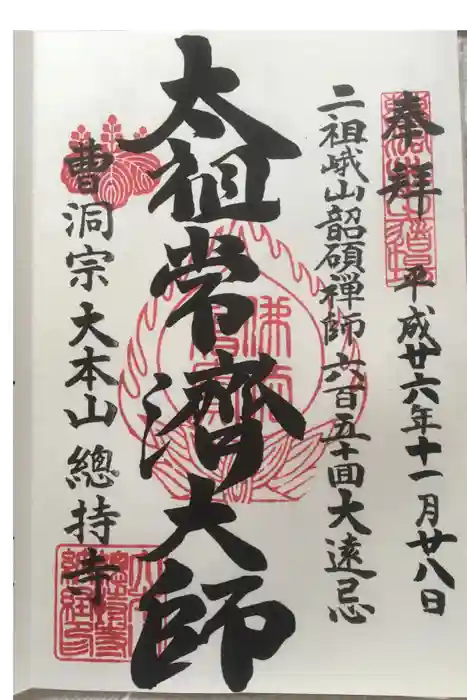 奉拝 平成廿六年十一月廿八日
二祖峨山韶碩禅師六百五十回大遠忌
太祖常濟大師
曹洞宗大本山總持寺